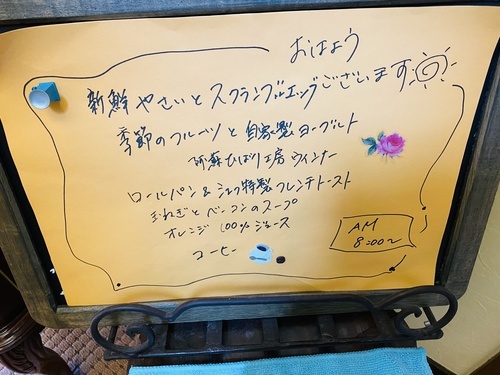 おはよう
ございます
新鮮やさいとスクランブルエッグ
季節のフルーツと自家製ヨーグルト
阿蘇ひばり工房ウインナー
ロールパン&シェフ特製フレンチトースト
玉ねぎとベーコンのスープ
オレンジ100%ジュース
コーヒー
AM
8:00~